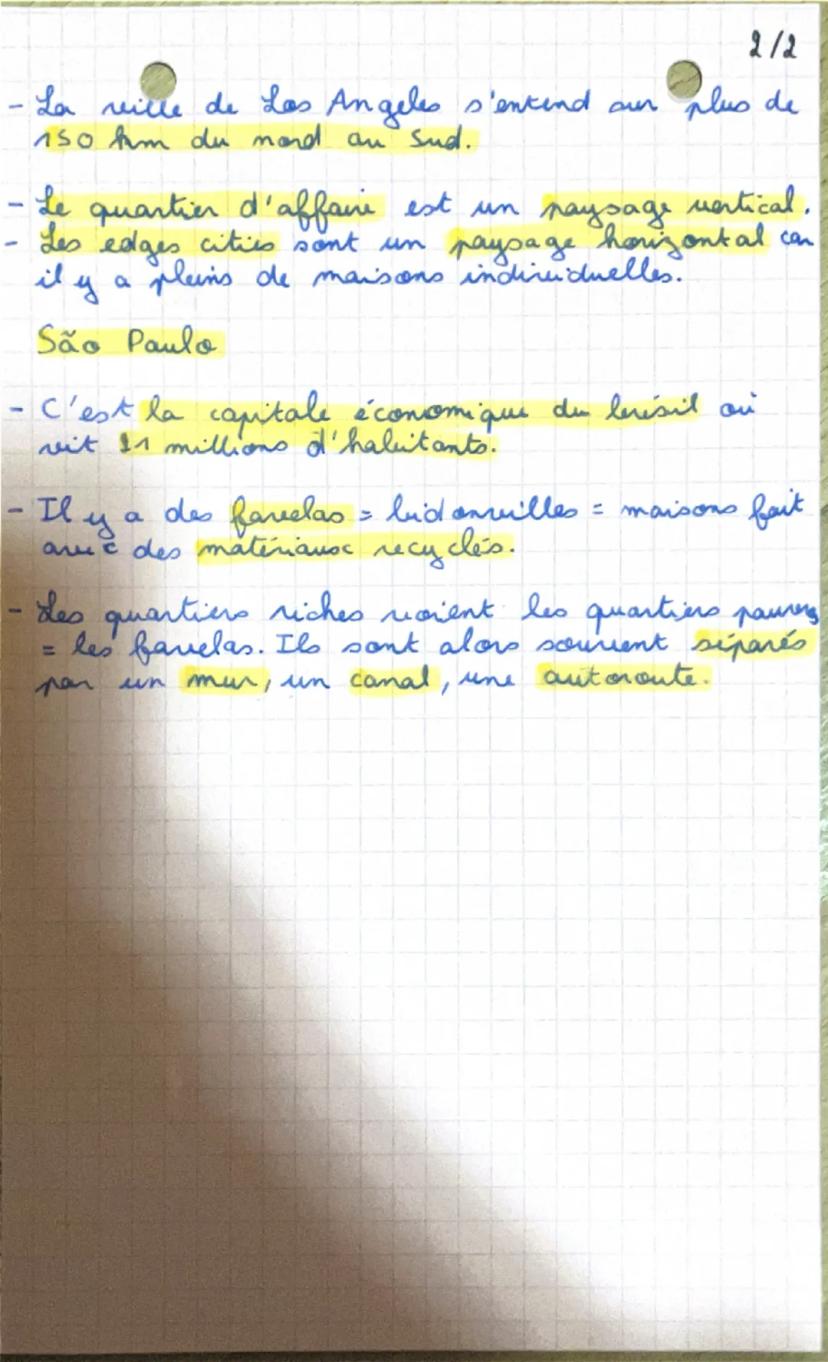 2/2
- La ville de Los Angeles s'entend sur plus de
150 km du nord au sud.
- Le quartier d'affaire est un paysage vertical.
- Les edges cities sont un paysage horizontal car
il y a pleins de maisons individuelles.
São Paulo
- C'est la capitale économique du brésil où
vit 21 millions d'habitants.
- Il y a des favelas = bidonvilles = maisons fait
avec des matériaux recyclés.
- Les quartiers riches voient les quartiers pauvres
= les favelas. Ils sont alors souvent séparés
par un mur, un canal, une autoroute.